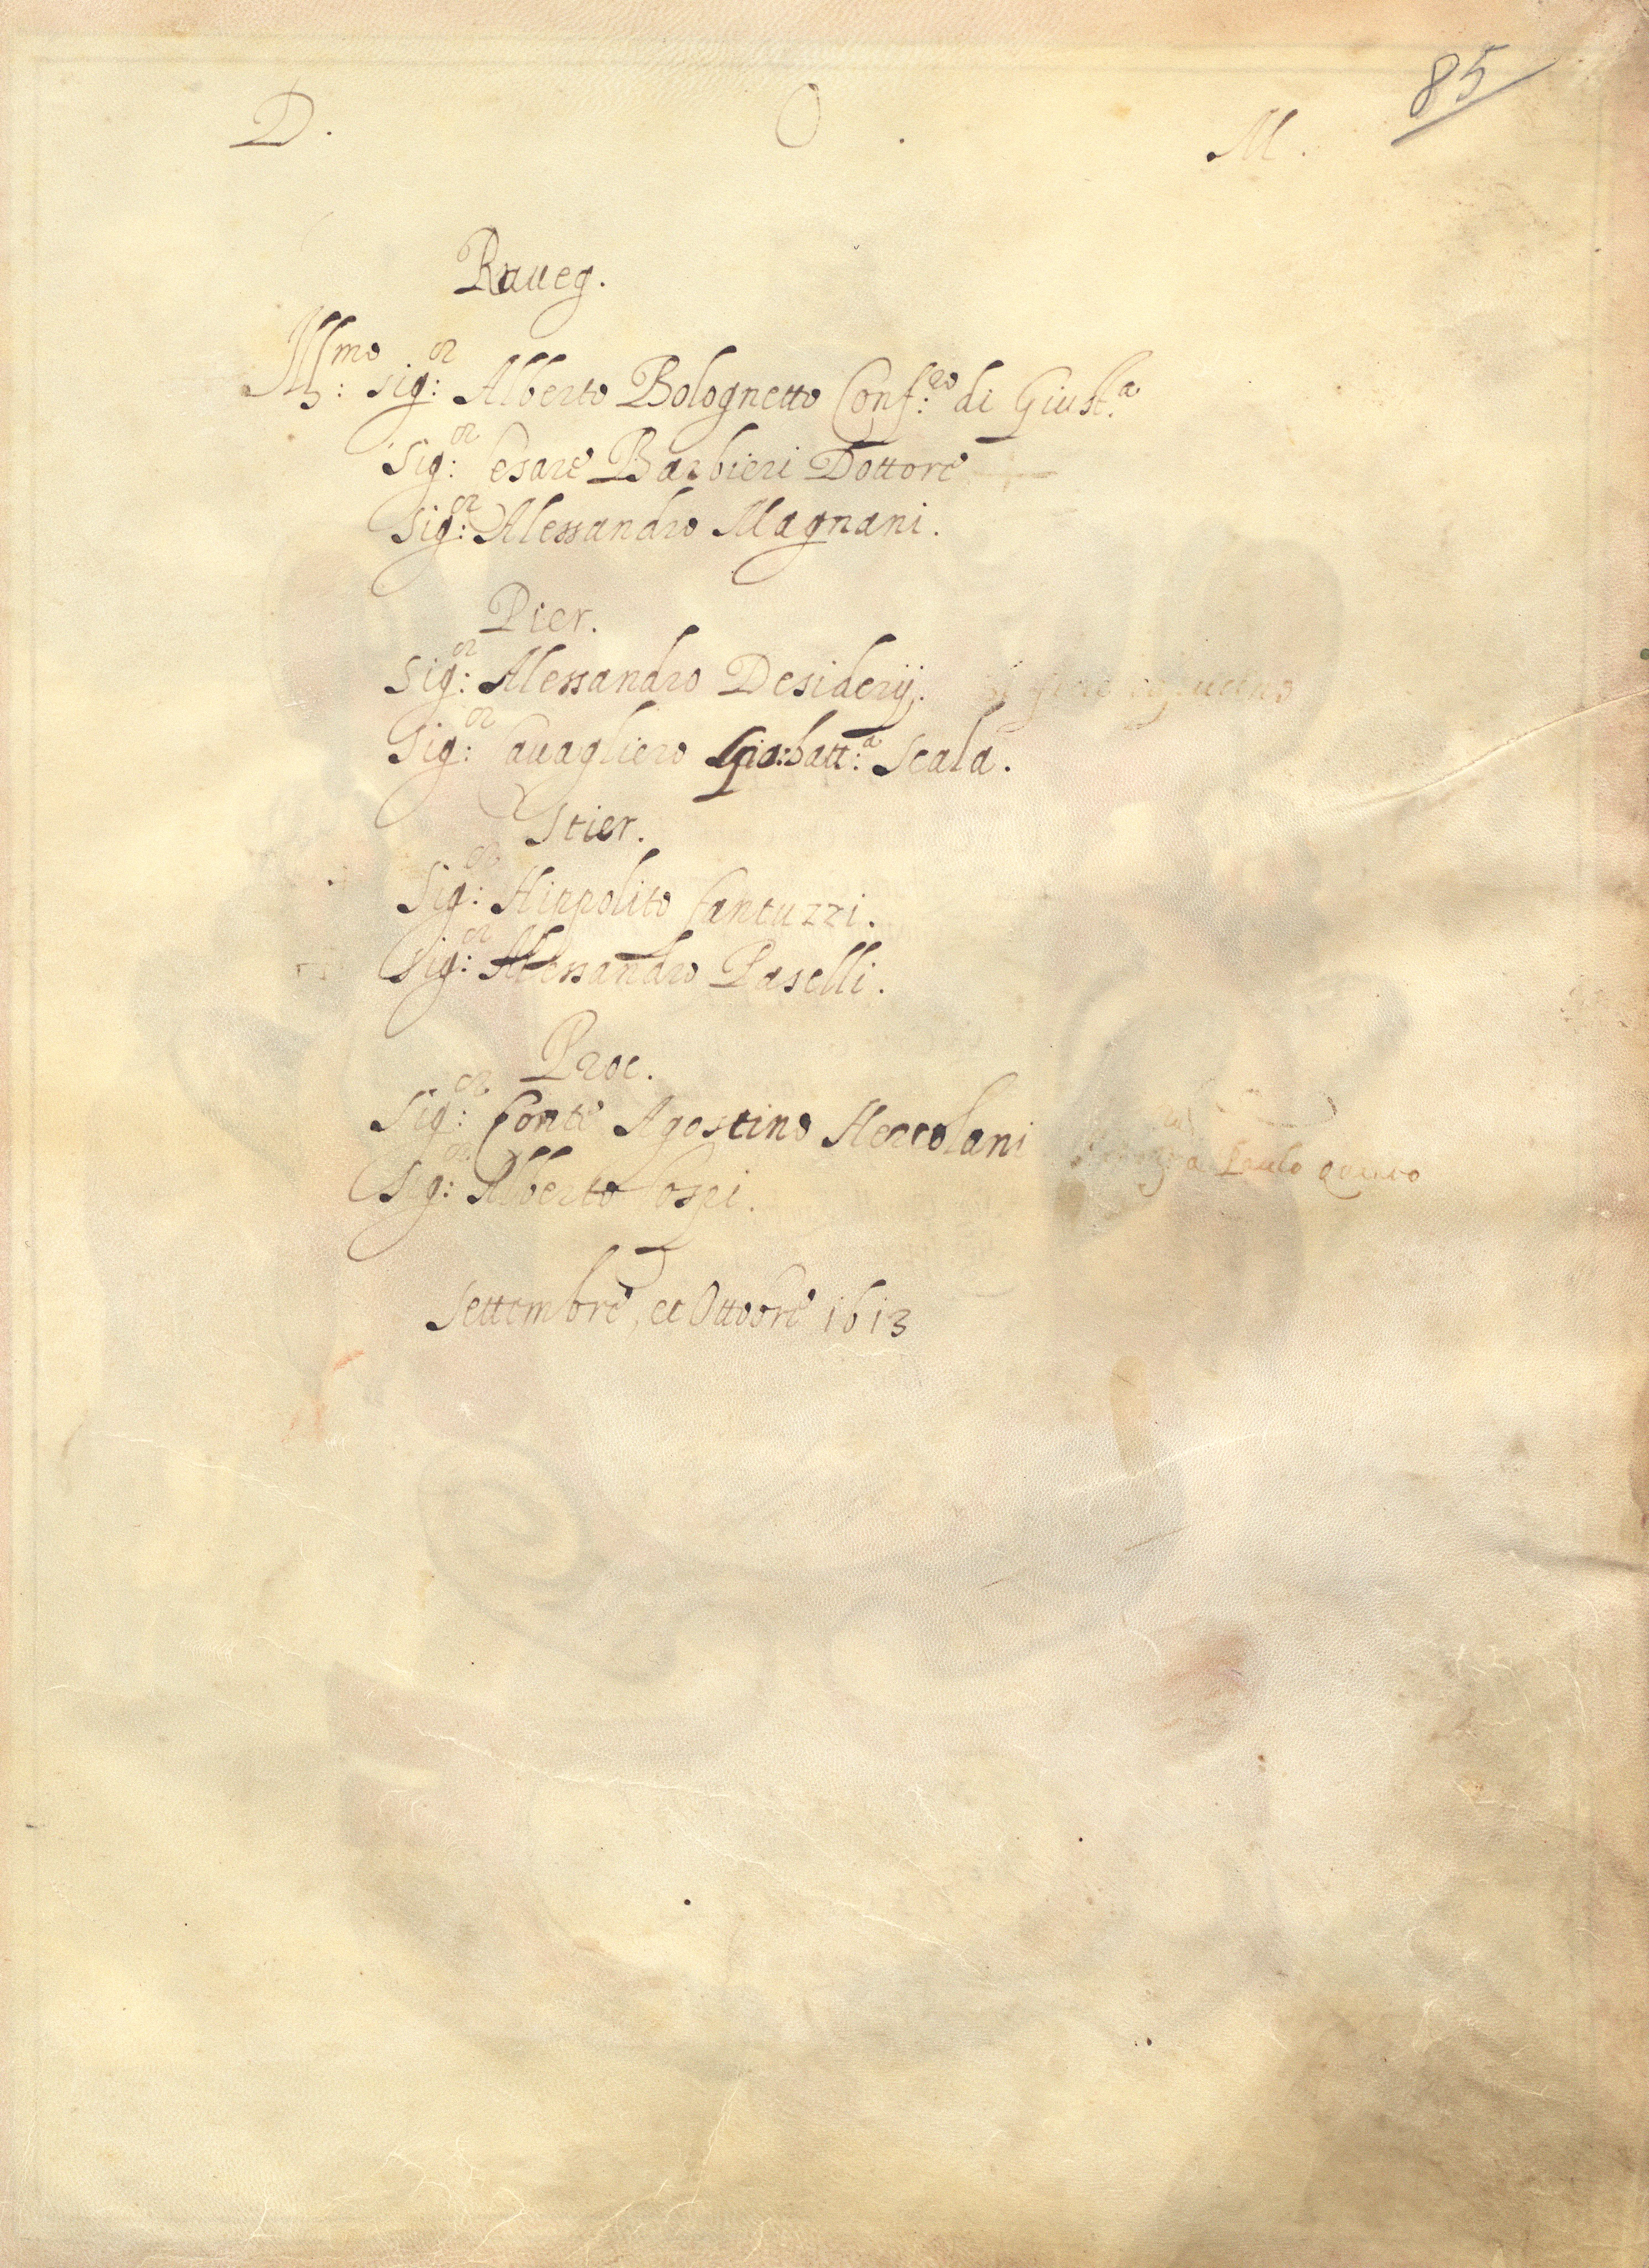 85
D. O. M.
Raueg.
Ill:mo Sig:or Alberto Bolognetto Conf:ro di Giust:a
Sig:or Cesare Barbieri Dottore
Sig:or Alessandro Magnani.
Pier.
Sig:or Alessandro Desiderij. si fece capucino
Sig:or Cauagliero Gio:batt:a Scala.
Stier.
Sig:or Hippolito Fantuzzi.
Sig:or Alessandro Paselli.
Proc.
Sig:or Conte Agostino Hercolani
Sig:or Alberto Cospi. a Paulo Quinto
Settembre, et Ottobre 1613